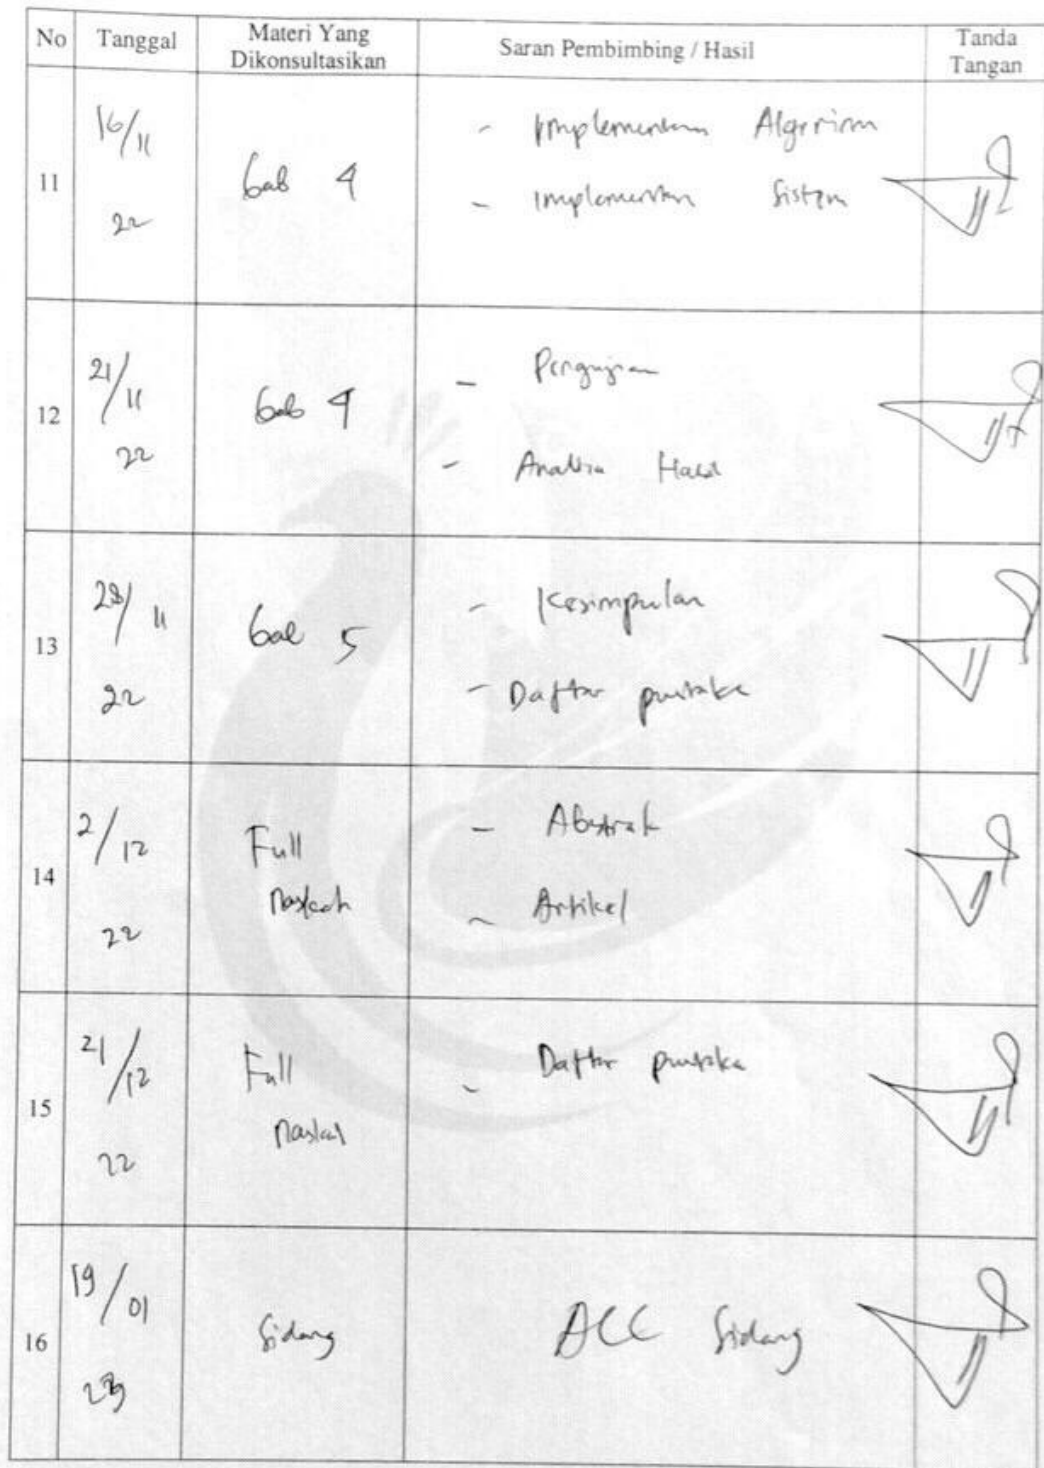 No Tanggal Materi Yang Dikonsultasikan Saran Pembimbing / Hasil Tanda Tangan
11
16/11
22
bab 4
- Implementasi Algoritma
- Implementasi Sistem
12
21/11
22
bab 4
- Pengujian
- Analisa Hasil
13
28/11
22
bab 5
- Kesimpulan
- Daftar pustaka
14
2/12
22
Full
naskah
- Abstrak
- Artikel
15
21/12
22
Full
naskah
- Daftar pustaka
16
19/01
23
Sidang
ACC Sidang